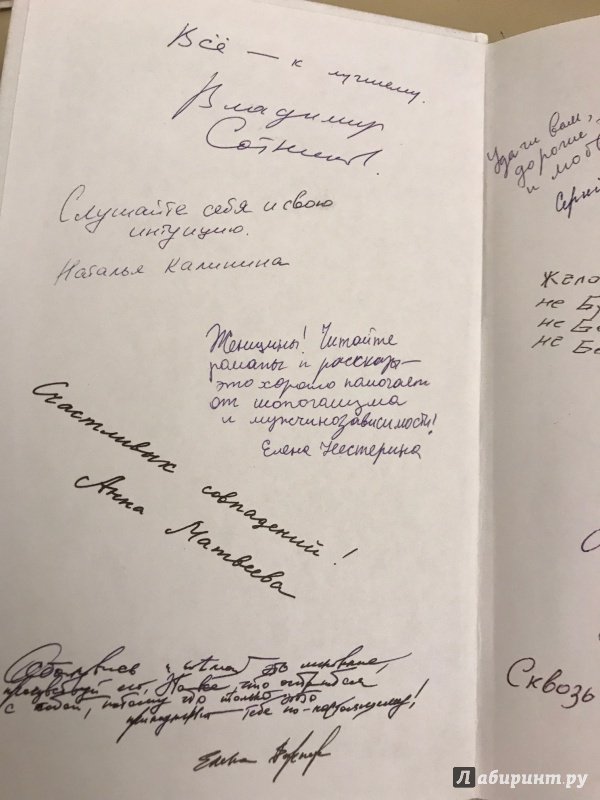 Всё — к лучшему.
Владимир
Сотников.
Слушайте себя и свою
интуицию.
Наталья Калинина
Женщины! Читайте
романы и рассказы —
это хорошо помогает
от шопоголизма
и мужчинозависимости!
Елена Нестерина
Счастливых совпадений!
Анна Матвеева
что
с тобой, потому что только это
тебе по-настоящему!
Елена
Удачи вам,
дорогие
и любви
Сергей
Жела
не Бу
не Бо
не Бо
Сквозь
Лабиринт.ру